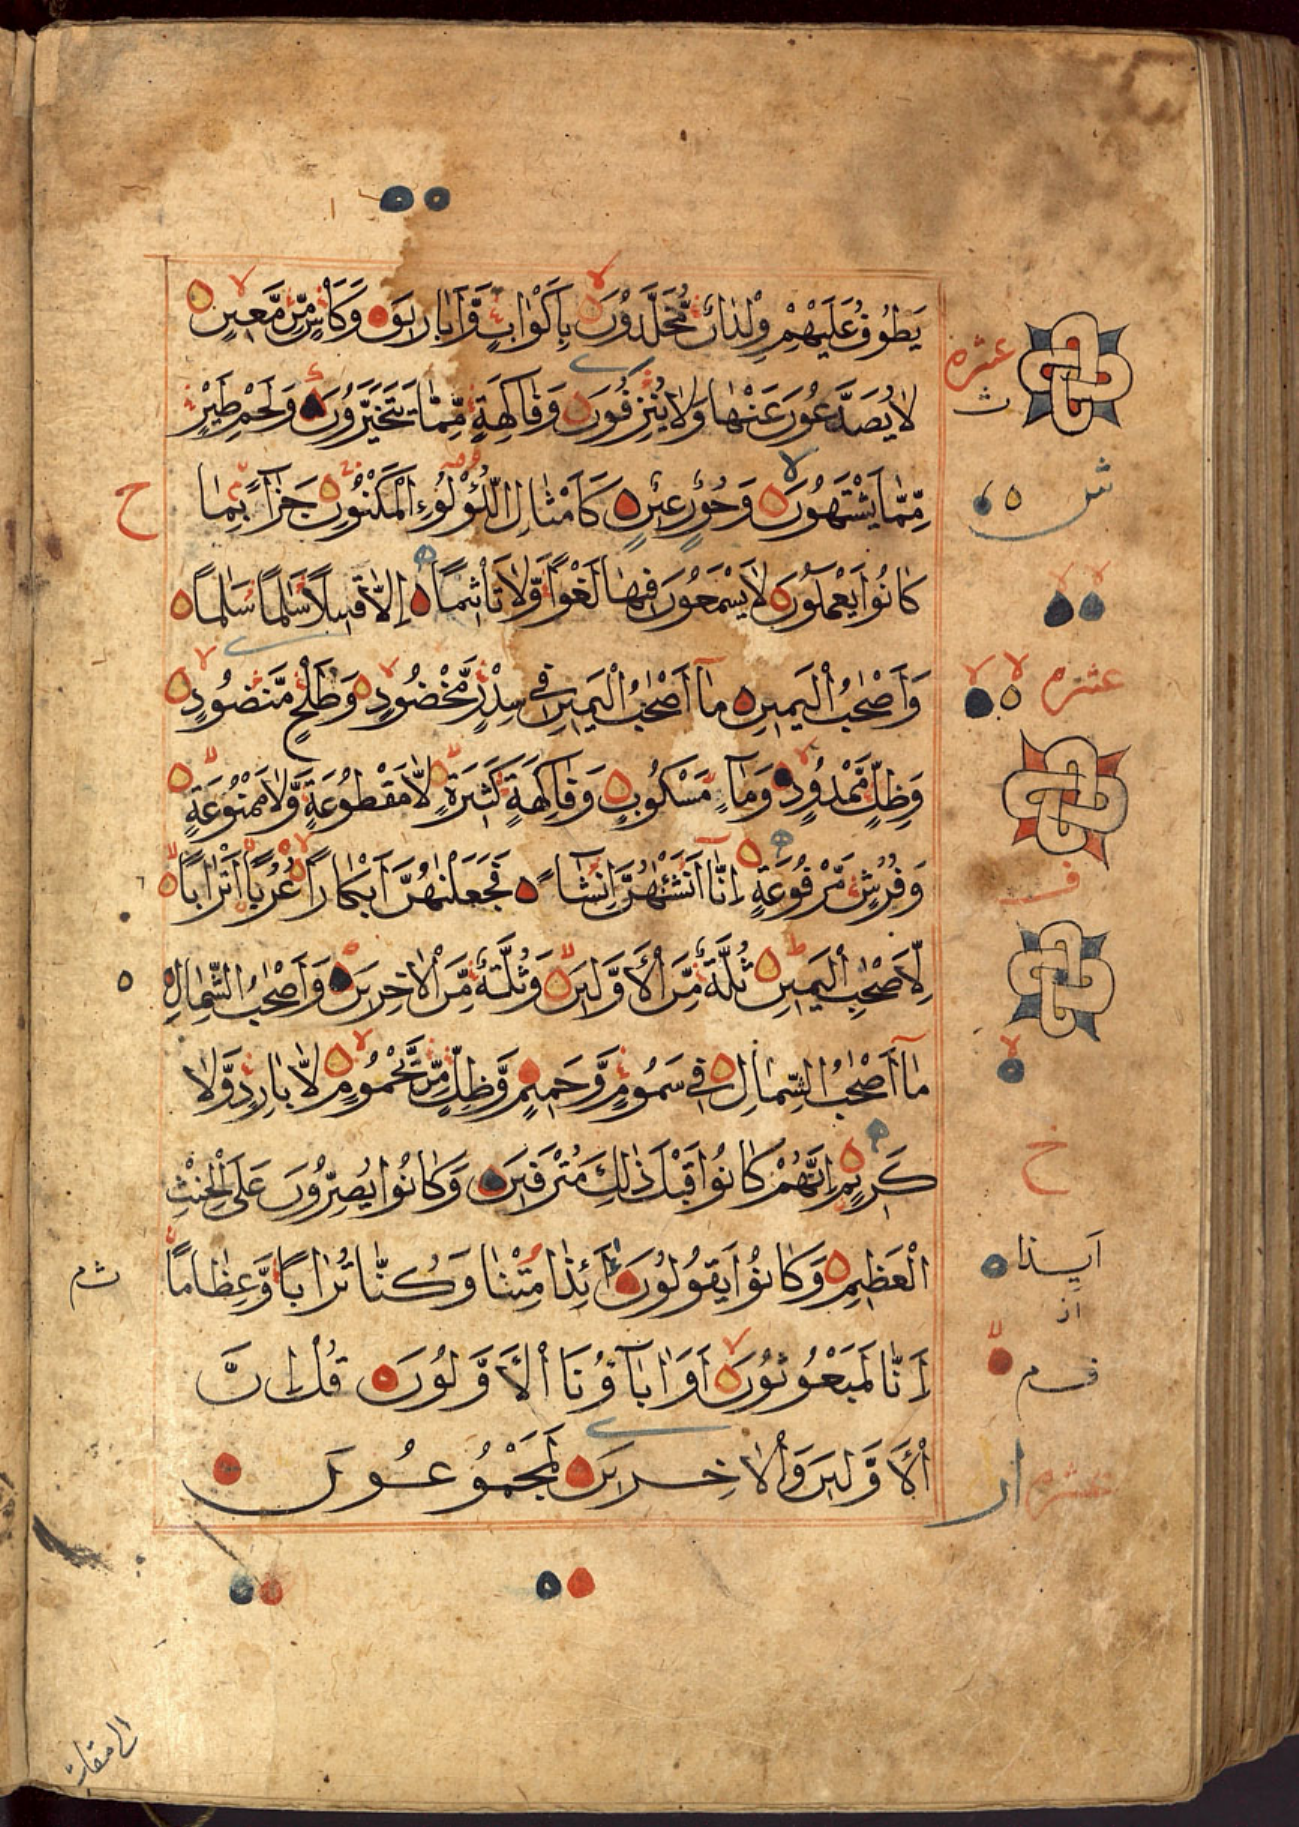 يَطُوفُ عَلَيْهِمْ وِلْدَانٌ مُّخَلَّدُوْنَ بِاَكْوَابٍ وَّاَبَارِيْقَ وَكَاْسٍ مِّنْ مَّعِيْنٍ
لَا يُصَدَّعُوْنَ عَنْهَا وَلَا يُنْزِفُوْنَ وَفَاكِهَةٍ مِّمَّا يَتَخَيَّرُوْنَ وَلَحْمِ طَيْرٍ
مِّمَّا يَشْتَهُوْنَ وَحُوْرٌ عِيْنٌ كَاَمْثَالِ اللُّؤْلُوءِ الْمَكْنُوْنِ جَزَآءً بِمَا
كَانُوْا يَعْمَلُوْنَ لَا يَسْمَعُوْنَ فِيْهَا لَغْوًا وَّلَا تَاْثِيْمًا اِلَّا قِيْلًا سَلٰمًا سَلٰمًا
وَاَصْحٰبُ الْيَمِيْنِ مَآ اَصْحٰبُ الْيَمِيْنِ فِيْ سِدْرٍ مَّخْضُوْدٍ وَطَلْحٍ مَّنْضُوْدٍ
وَظِلٍّ مَّمْدُوْدٍ وَمَآءٍ مَسْكُوْبٍ وَفَاكِهَةٍ كَثِيْرَةٍ لَّا مَقْطُوْعَةٍ وَّلَا مَمْنُوْعَةٍ
وَفُرُشٍ مَّرْفُوْعَةٍ اِنَّآ اَنْشَئْنٰهُنَّ اِنْشَآءً فَجَعَلْنٰهُنَّ اَبْكَارًا عُرُبًا اَتْرَابًا
لِّاَصْحٰبِ الْيَمِيْنِ ثُلَّةٌ مِّنَ الْاَوَّلِيْنَ وَثُلَّةٌ مِّنَ الْاٰخِرِيْنَ وَاَصْحٰبُ الشِّمَالِ
مَآ اَصْحٰبُ الشِّمَالِ فِيْ سَمُوْمٍ وَّحَمِيْمٍ وَّظِلٍّ مِّنْ يَّحْمُوْمٍ لَّا بَارِدٍ وَّلَا
كَرِيْمٍ اِنَّهُمْ كَانُوْا قَبْلَ ذٰلِكَ مُتْرَفِيْنَ وَكَانُوْا يُصِرُّوْنَ عَلَى الْحِنْثِ
الْعَظِيْمِ وَكَانُوْا يَقُوْلُوْنَ أَئِذَا مِتْنَا وَكُنَّا تُرَابًا وَّعِظَامًا
اَِنَّا لَمَبْعُوْثُوْنَ اَوَاٰبَآؤُنَا الْاَوَّلُوْنَ قُلْ اِنَّ
الْاَوَّلِيْنَ وَالْاٰخِرِيْنَ لَمَجْمُوْعُوْنَ
عشره
ث
ح
عشره
ف
خ
اَيِـذا
ثم
عشره
الى ميقات